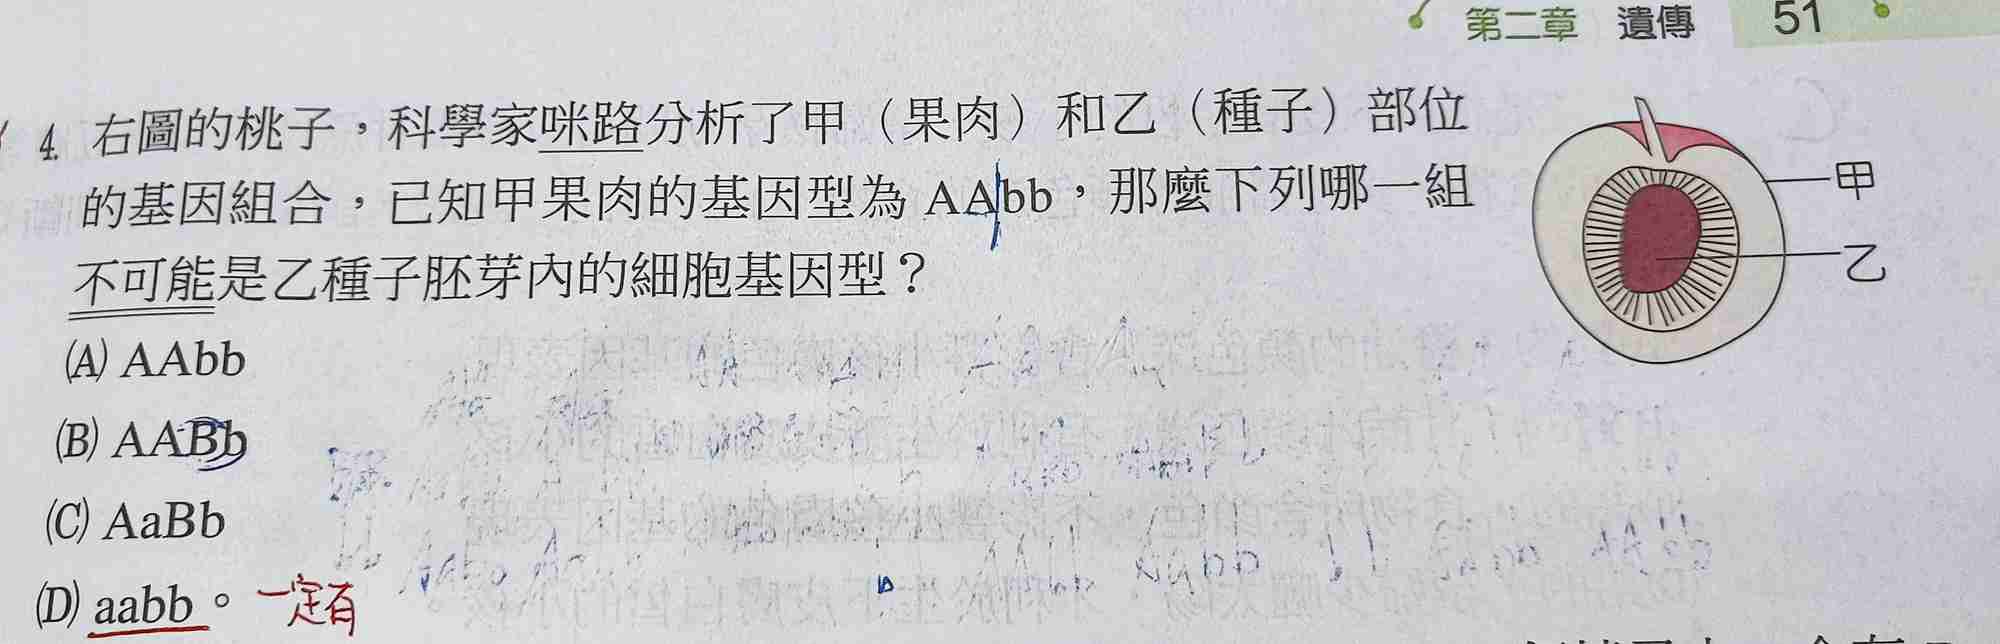 第二章 遺傳 51
4. 右圖的桃子，科學家咪路分析了甲（果肉）和乙（種子）部位
的基因組合，已知甲果肉的基因型為 AAbb，那麼下列哪一組
不可能是乙種子胚芽內的細胞基因型？
甲
乙
(A) AAbb
(B) AABb
(C) AaBb
(D) aabb。一定有